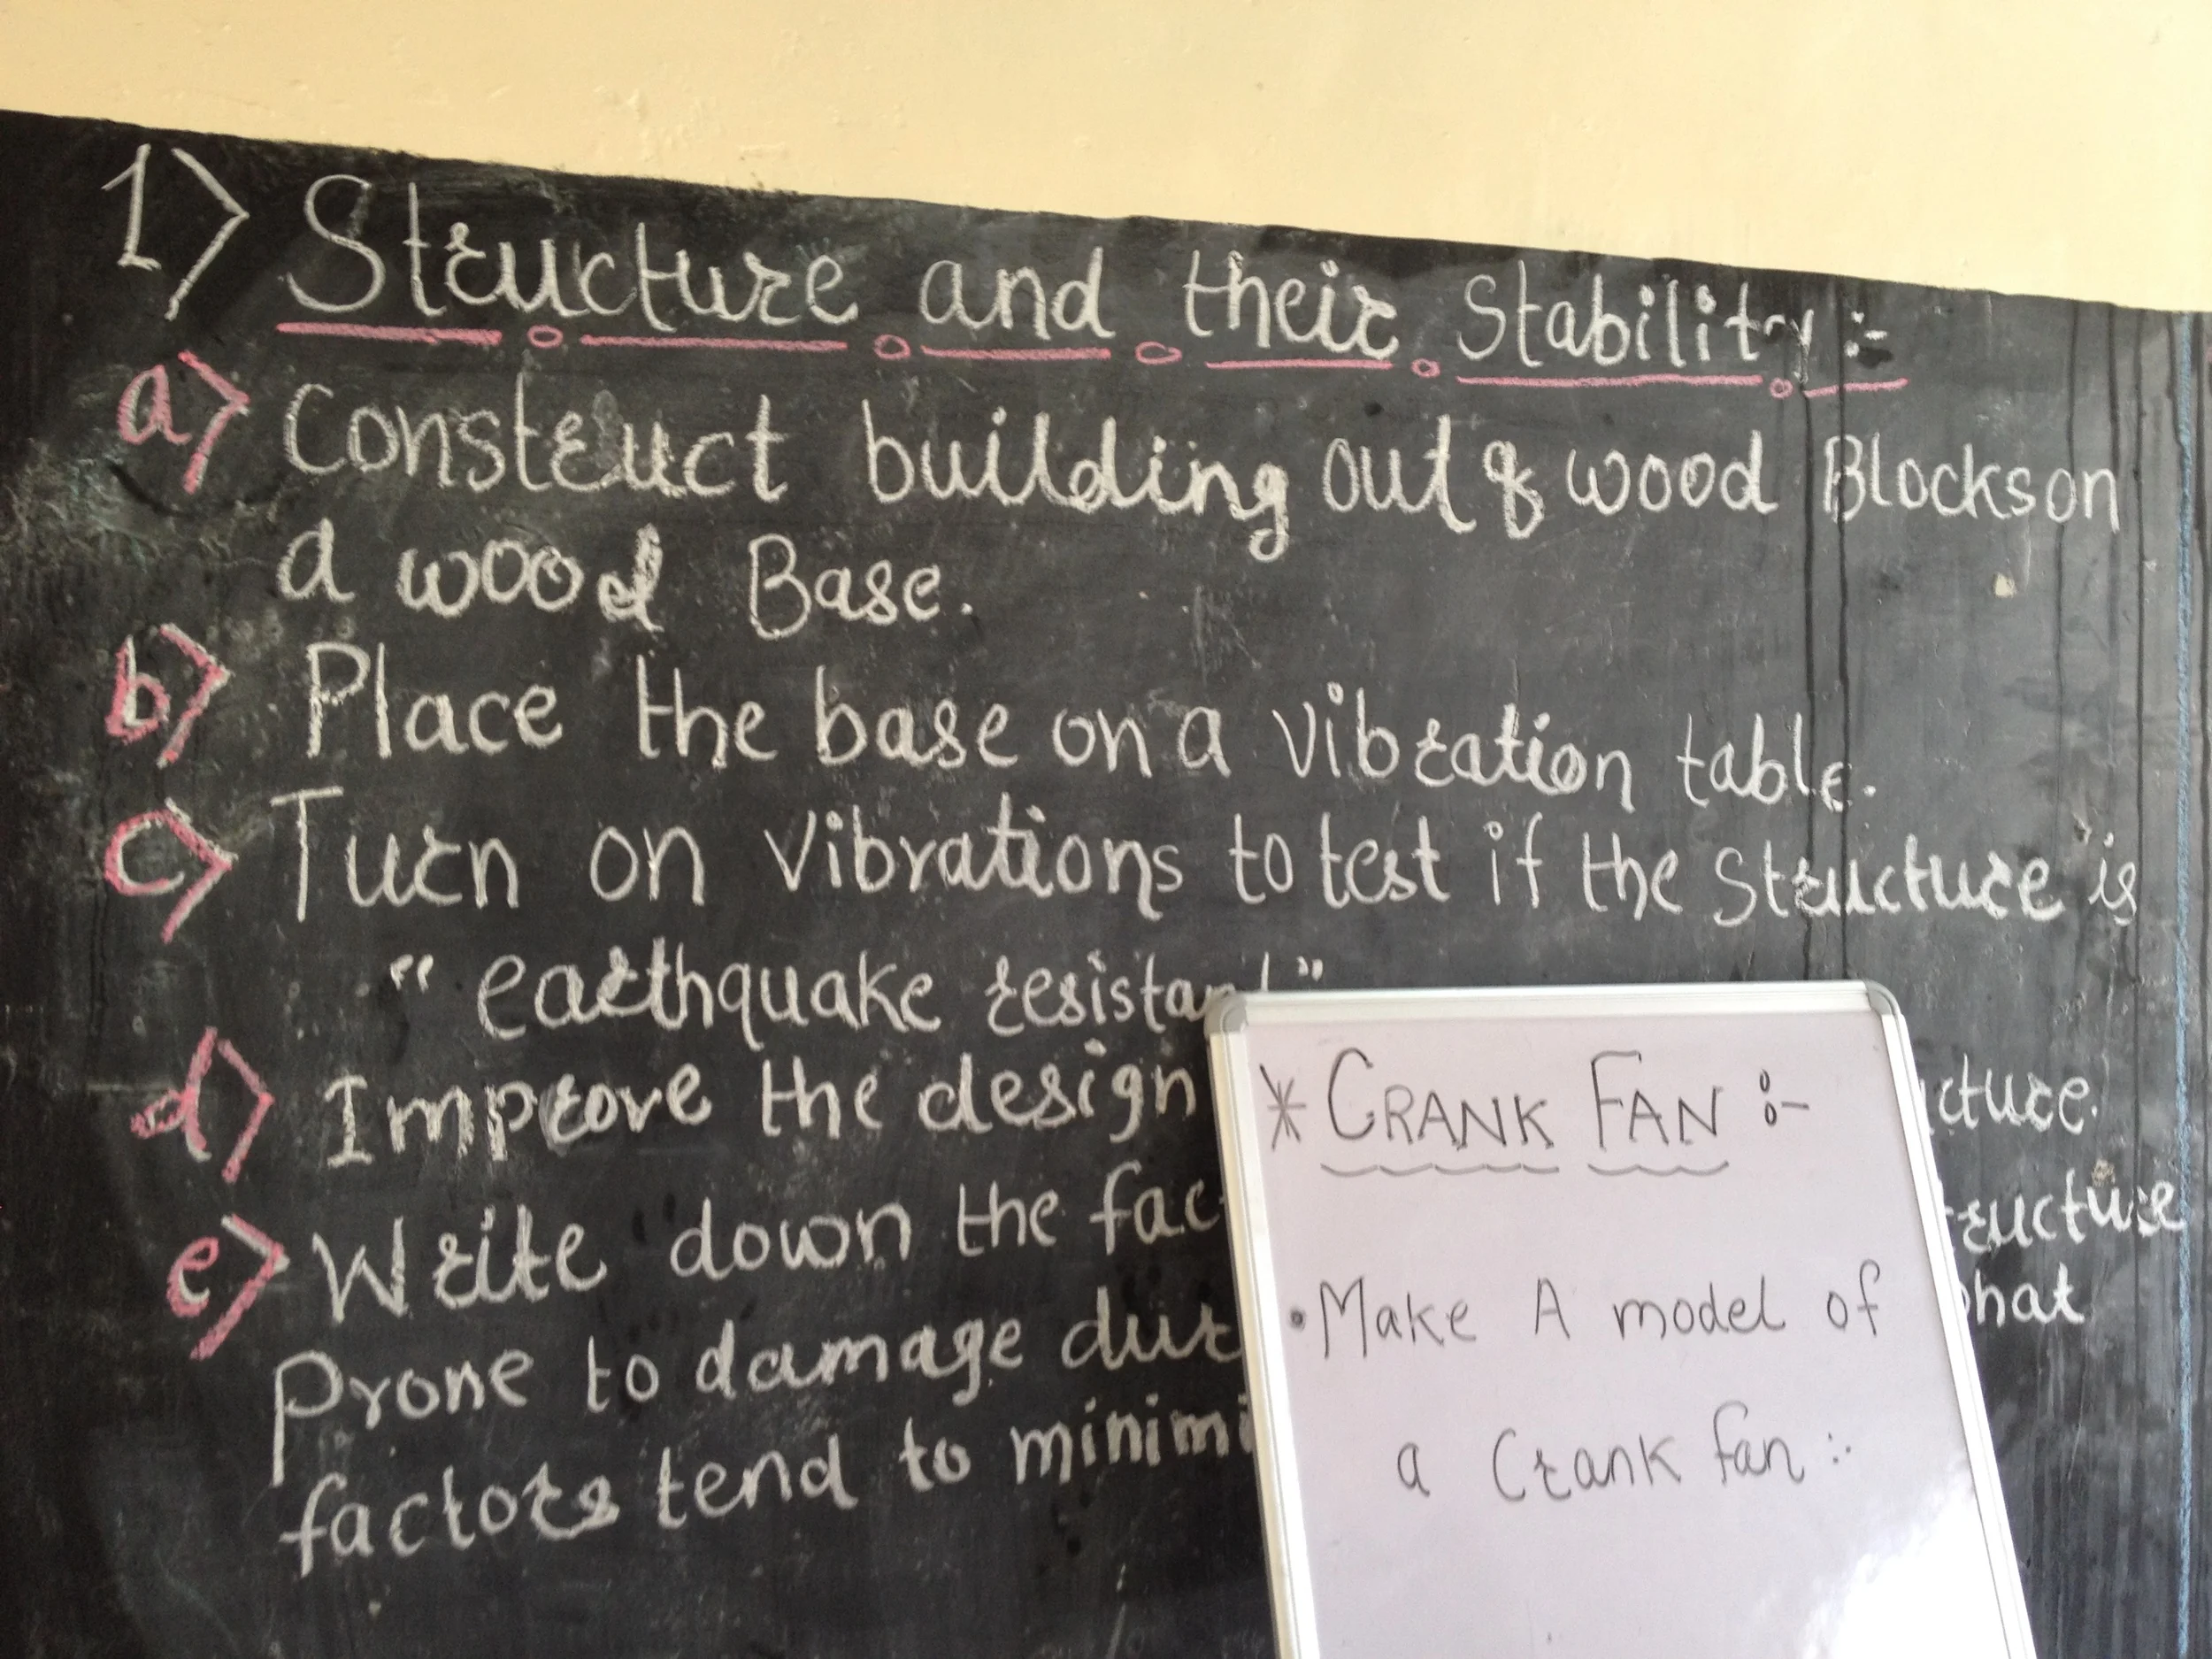 1> Structure and their Stability :-
a> Construct building out of wood Blockson
a wood Base.
b> Place the base on a vibration table.
c> Turn on vibrations to test if the structure is
"earthquake resistant"
d> Improve the design
e> Write down the
Prone to damage
factors tend to
* CRANK FAN :-
• Make A model of
a Crank fan :-